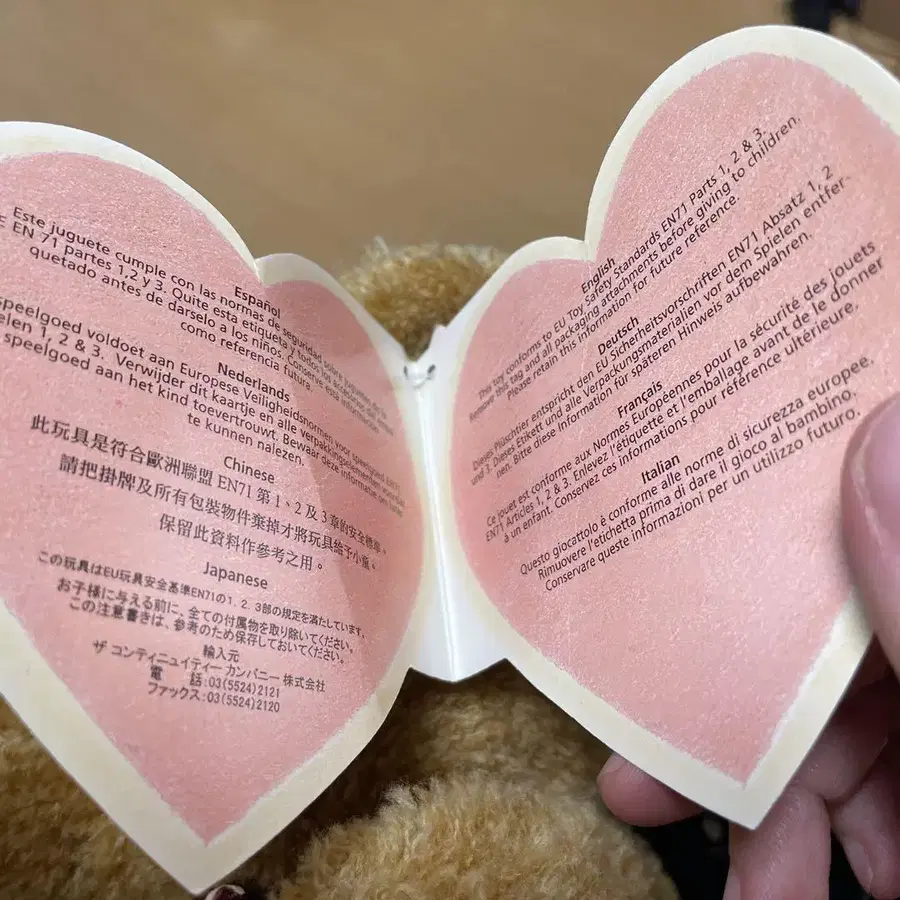 Español
Este juguete cumple con las normas de seguridad sobre juguetes de la
E EN 71 partes 1,2 y 3. Quite esta etiqueta y todos los accesorios del
quetado antes de darselo a los niños. Conserve esta información
como referencia futura.
Nederlands
speelgoed voldoet aan Europese Veiligheidsnormen voor speelgoed EN71,
elen 1, 2 & 3. Verwijder dit kaartje en alle verpakkingselementen voordat u
speelgoed aan het kind toevertrouwt. Bewaar deze informatie om later
te kunnen nalezen.
Chinese
此玩具是符合歐洲聯盟 EN71 第 1、2 及 3 章的安全標準。
請把掛牌及所有包裝物件棄掉才將玩具給予小童。
保留此資料作參考之用。
Japanese
この玩具はEU玩具安全基準EN71の1. 2. 3部の規定を満たしています。
お子様に与える前に、全ての付属物を取り除いてください。
この注意書きは、参考のため保存しておいてください。
輸入元
ザ コンティニュイティー カンパニー 株式会社
電 話:03(5524)2121
ファックス:03(5524)2120
English
This toy conforms to EU Toy Safety Standards EN71 Parts 1, 2 & 3.
Remove this tag and all packaging attachments before giving to children.
Please retain this information for future reference.
Deutsch
Dieses Plüschtier entspricht den EU Sicherheitsvorschriften EN71 Absatz 1, 2
und 3. Dieses Etikett und alle Verpackungsmaterialien vor dem Spielen entfer-
nen. Bitte diese Information für späteren Hinweis aufbewahren.
Français
Ce jouet est conforme aux Normes Européennes pour la sécurité des jouets
EN71 Articles 1, 2 & 3. Enlevez l'étiquette et l'emballage avant de le donner
à un enfant. Conservez ces informations pour référence ultérieure.
Italian
Questo giocattolo é conforme alle norme di sicurezza europee.
Rimuovere l'etichetta prima di dare il gioco al bambino.
Conservare queste informazioni per un utilizzo futuro.